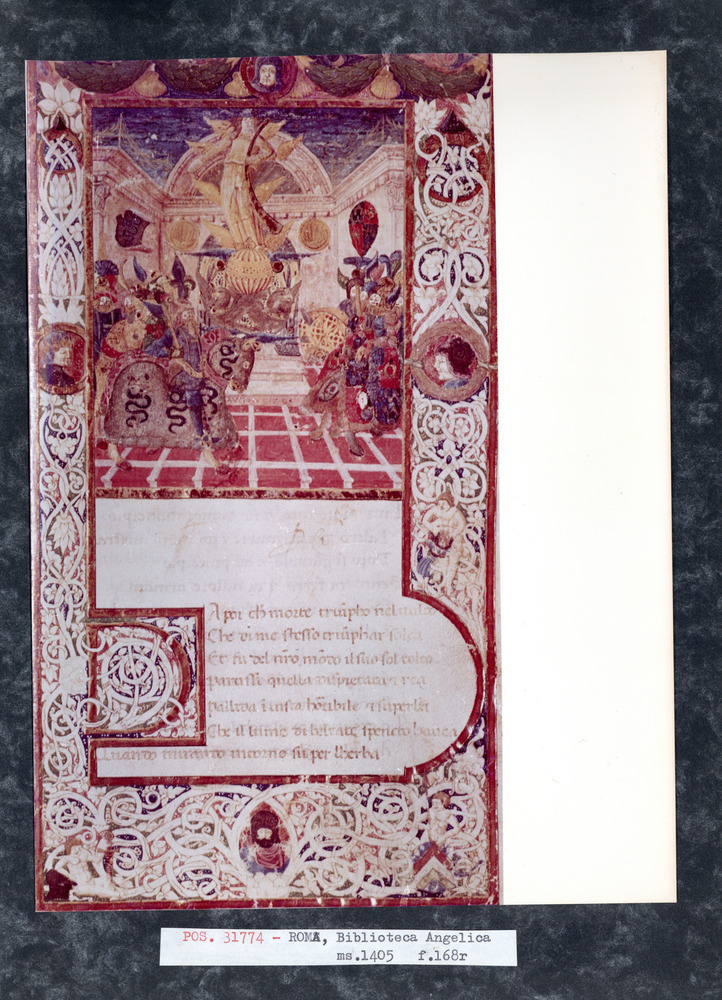 Da poi ch morte triũpho nel uolto
Che di me stesso triũphar solea
Et fu del nr̃o mõdo il suo sol tolto
Partissi quella dispietata
pallida i uista horibile superba
Che il lume di beltate spento hauea
Quando mirando intorno su per lherba
POS. 31774 - ROMA, Biblioteca Angelica
ms.1405 f.168r